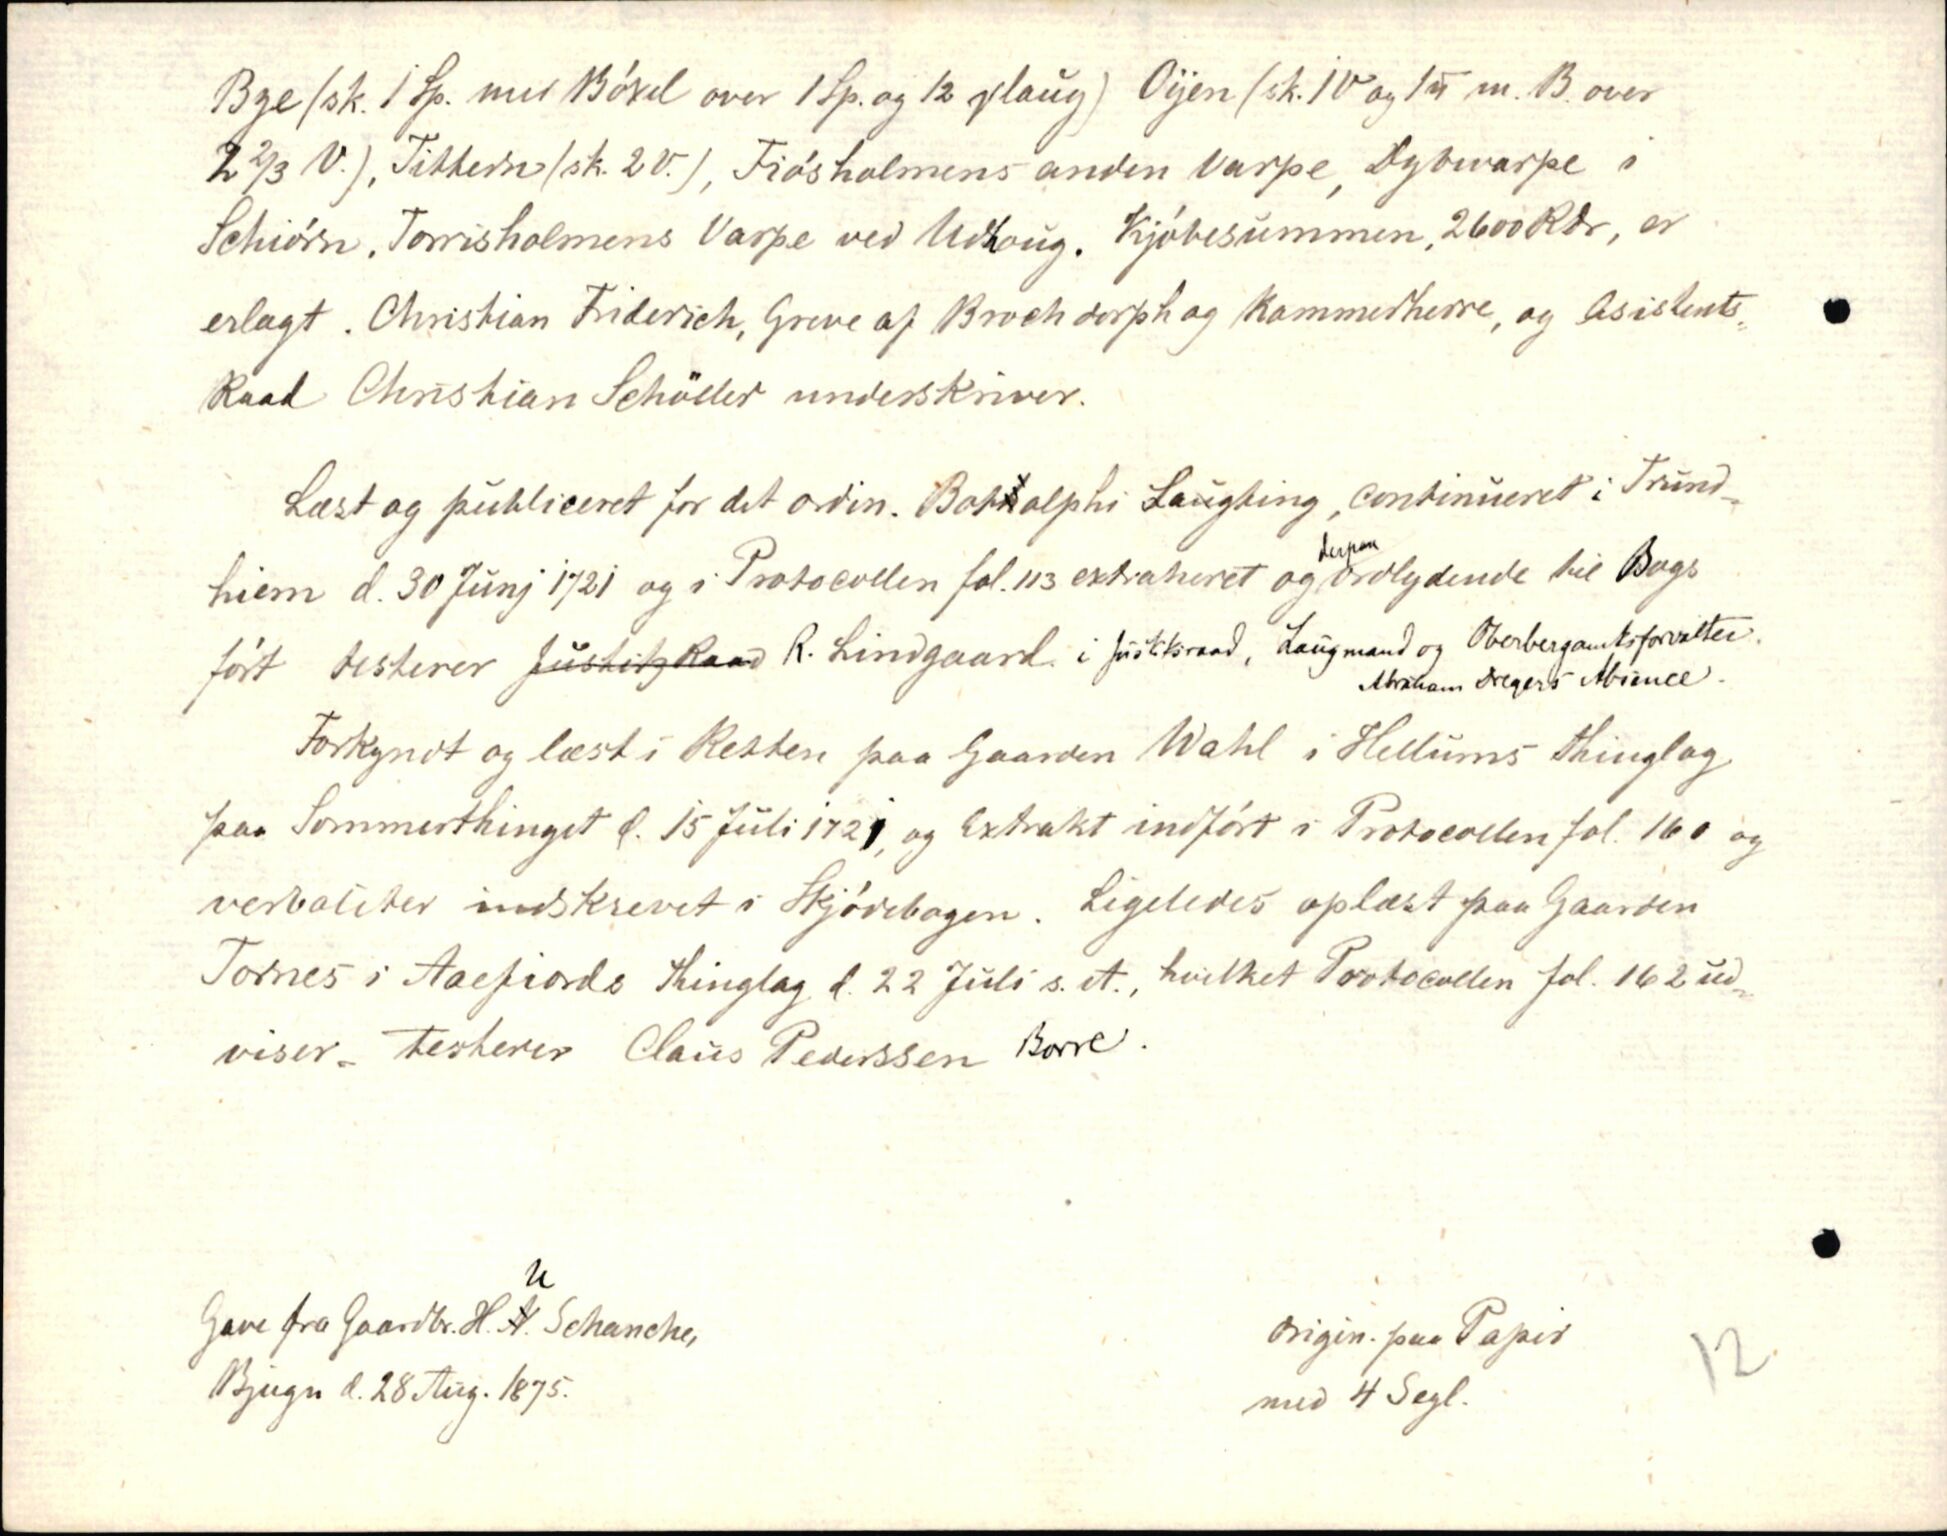 Bye (sk. 1 Sp. med Bóxel over 1 Sp. og 12 ȷlaug) Oÿen (sk. 1 V og 1 m. B. over
2 2/3 V.), Tittern (sk. 2 V.), Fiósholmens anden Varpe, Dybvarpe i
Schiórn, Torrisholmens Varpe ved Udhoug. Kjóbesummen, 2600 Rdr, er
erlagt. Christian Friderich, Greve af Brochdorph og Kammerherre, og Asistents-
Raad Christian Schöller underskriver.
Læst og publiceret for det ordin. Botolphi Laugting, continueret i Trund-
hiem d. 30 Junj 1721 og i Protocollen fol. 113 extraheret og derpaa ordlydende til Bogs
fórt testerer Justitz Raad R. Lindgaard i Justitsraad, Laugmand og Oberbergamtsforvalter
Abraham Dregers Absence.
Forkyndt og læst i Retten paa Gaarden Wahl i Hellums thinglag
paa Sommerthinget d. 15 Juli 1721, og Extrakt indfórt i Protocollen fol. 160 og
verbaliter indskrevet i Skjódebogen. Ligeledes oplæst paa Gaarden
Tornes i Aaefiords thinglag d. 22 Juli s. A., hvilket Protocollen fol. 162 ud-
viser - testerer Claus Pederssen Borre.
Gave fra Gaardbr. H. U. Schanche,
Bjugn d. 28 Aug. 1875.
Origin. paa Papir
med 4 Segl.
12